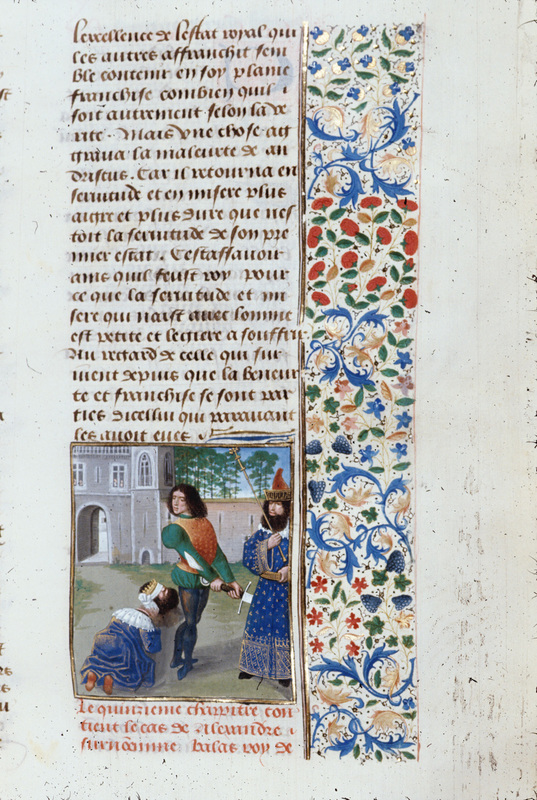 lexcellence de lestat royal qui
les autres affranchit sem
ble contenir en soy plaine
franchise combien quil
soit autrement selon la ve
rite. Mais vne chose ag
graua la maleurte de an
driscus. Car il retourna en
seruitude et en misere plus
aigre et plus dure que nes
toit la seruitude de son pre
mier estat. Cestassauoir
ains quil feust roy pour
ce que la seruitude et mi
sere qui naist auec lomme
est petite et legiere a souffrir
Au regard de celle qui sur
uient depuis que la beneur
te et franchise se sont par
ties dicellui qui parauant
les auoit eues
Le quinzieme chappitre con
tient le cas de Alexandre
surnomme balas roy de